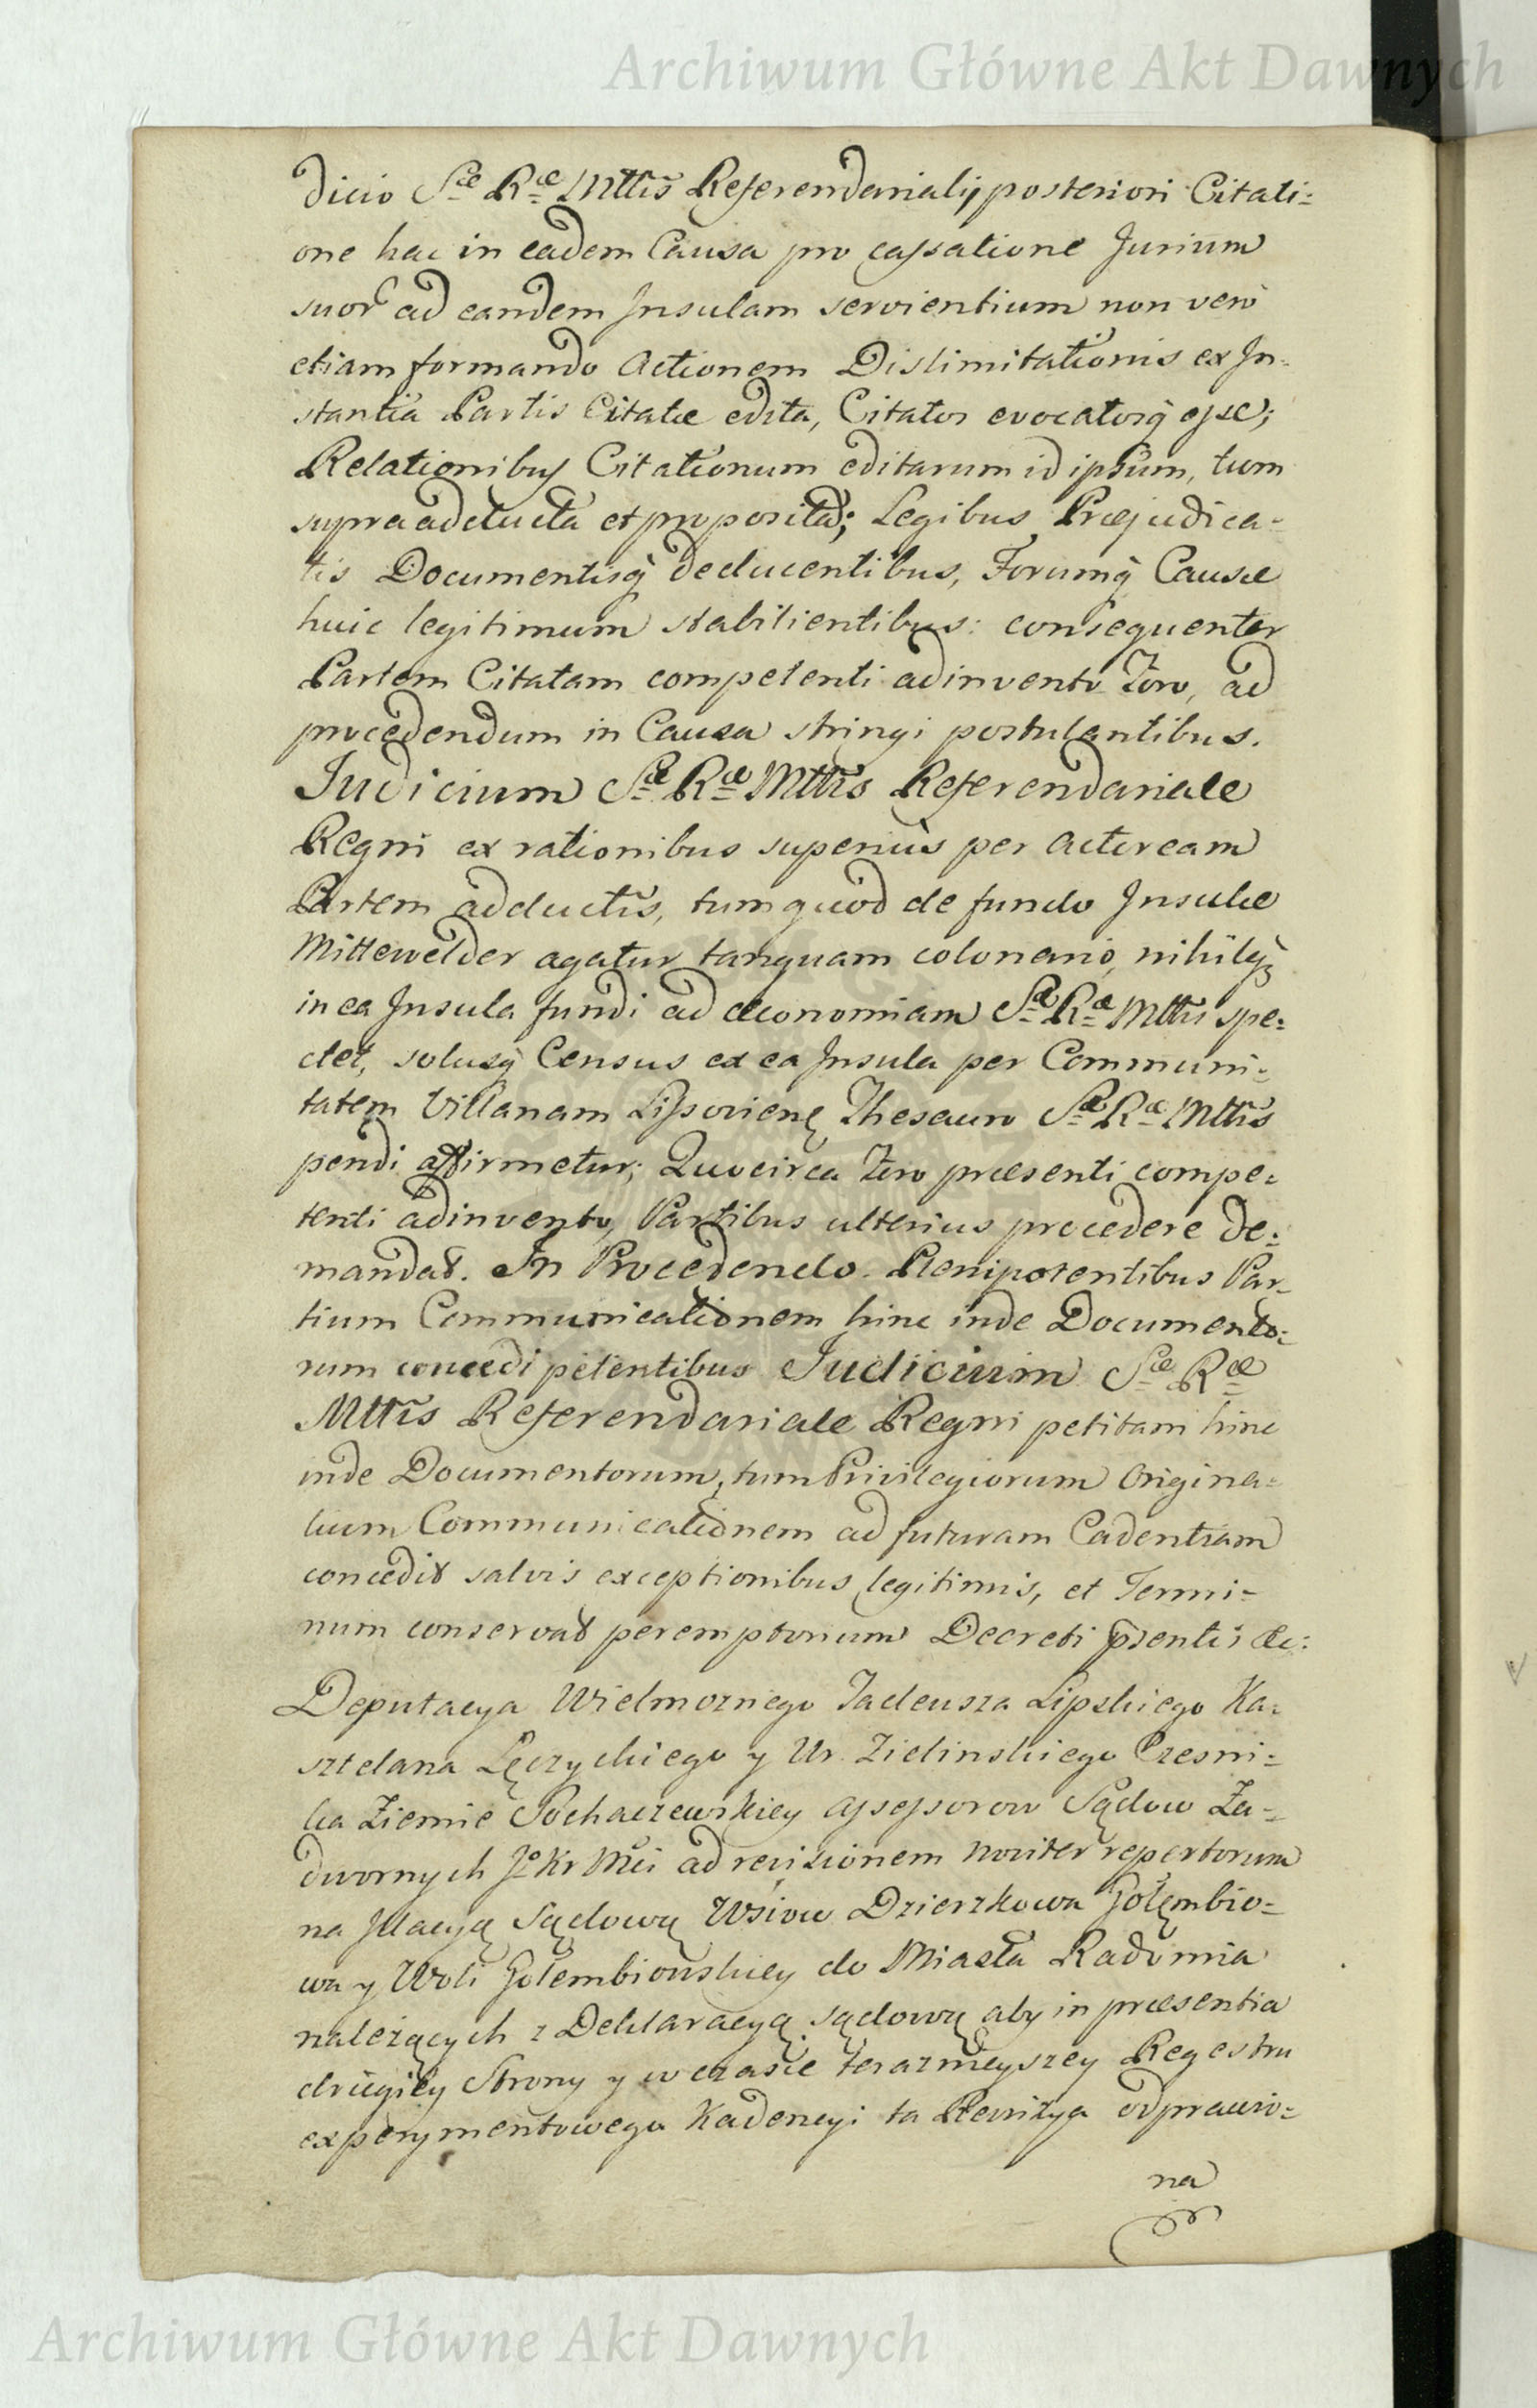 Archiwum Główne Akt Dawnych
dicio Sæ Ræ Mttis Referendarialij posteriori Citati=
one hac in eadem Causa pro cassatione Jurium
suor ad eandem Insulam servientium non vero
etiam formando Actionem Dislimitationis ex In=
stantia Partis Citatæ edita, Citator evocatorq̀ esse;
Relationibus Citationum editarum id ipsum, tum
supra adducta et proposita; Legibus Præjudica=
tis Documentisq̀ deducentibus, Forumq̀ Causæ
huic legitimum stabilientibus: consequenter
Partem Citatam competenti adinvento Foro, ad
procedendum in Causa stringi postulantibus.
Judicium Sæ Ræ Mttis Referendariale
Regni ex rationibus superius per Actoream
Partem adductis, tum quod de fundo Insulæ
Mittewelder agatur tanquam colonario, nihilq̀
in ea Insula fundi ad œconomiam Sæ Ræ Mttis spe=
ctet, solusq̀ Census ex ea Insula per Communi=
tatem Villanam Lissoviens Thesauro Sæ Ræ Mttis
pendi affirmetur; Quocirca Foro præsenti compe=
tenti adinvento, Partibus ulterius procedere de=
mandat. In Procedendo. Plenipotentibus Par=
tium Communicationem hinc inde Documento=
rum concedi petentibus Judicium Sæ Ræ
Mttis Referendariale Regni petitam hinc
inde Documentorum, tum Privilegiorum Origina=
lium Communicationem ad futuram Cadentiam
concedit salvis exceptionibus legitimis, et Termi=
num conservat peremptorium Decreti p̄sentis &c:
Deputacya Wielmoznego Tadeusza Lipskiego Ka=
sztelana Lęczyckiego y Ur. Zielinskiego Czesni=
ka Ziemie Sochaczewskiey Assessorow Sądow Za=
dwornych Jo Kr Mci ad revisionem noviter repertorum
na Illacyą Sądową Wsiow Dzierzkowa Gołembio=
wa y Woli Gołembiowskiey do Miasta Radomia
należących z Deklaracyą sądową aby in præsentia
drugiey Strony y w czasie terazmieyszey Regestru
experymentowego Kadencyi ta Rewizya odprawio=
na
Archiwum Główne Akt Dawnych